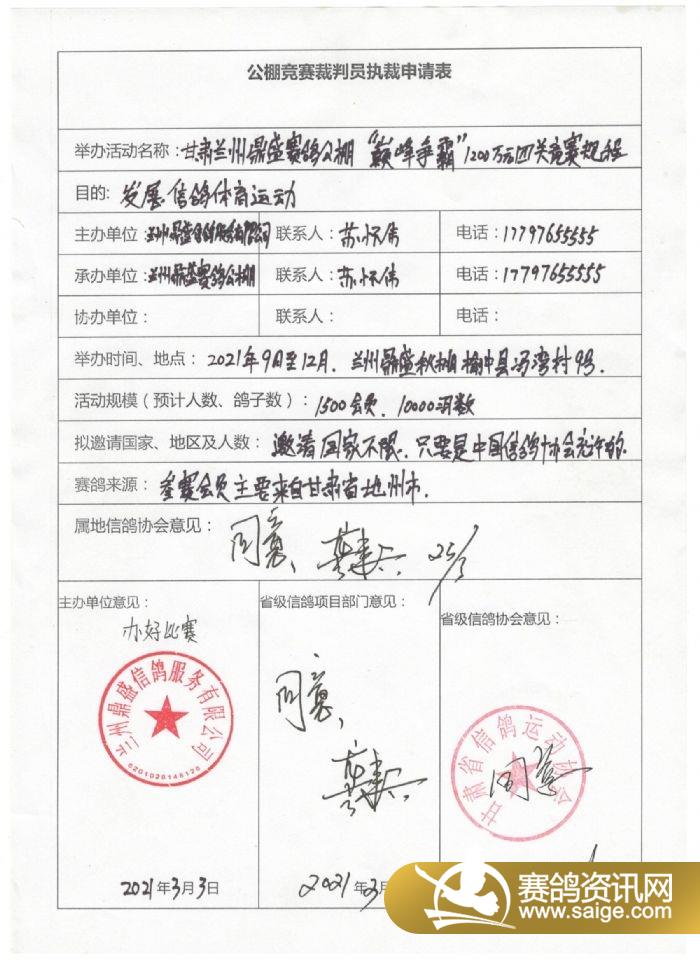 公棚竞赛裁判员执裁申请表
举办活动名称：甘肃兰州鼎盛赛鸽公棚“巅峰争霸”1200万元四关竞赛规程
目的：发展信鸽体育运动
主办单位：兰州鼎盛信鸽服务有限公司 联系人：苏怀伟 电话：17797655555
承办单位：兰州鼎盛赛鸽公棚 联系人：苏怀伟 电话：17797655555
协办单位： 联系人： 电话：
举办时间、地点：2021年9日至12月，兰州鼎盛秋棚 榆中县冯湾村9号.
活动规模（预计人数、鸽子数）：1500会员、10000羽数
拟邀请国家、地区及人数：邀请国家不限，只要是中国信鸽协会允许的.
赛鸽来源：参赛会员主要来自甘肃省地州市.
属地信鸽协会意见：同意、 25/3
主办单位意见： 省级信鸽项目部门意见： 省级信鸽协会意见：
办好比赛
兰州鼎盛信鸽服务有限公司
6201028146126
同意、
甘肃省信鸽运动协会
同意
2021年3月3日 2021年3月
赛鸽资讯网
www.saige.com